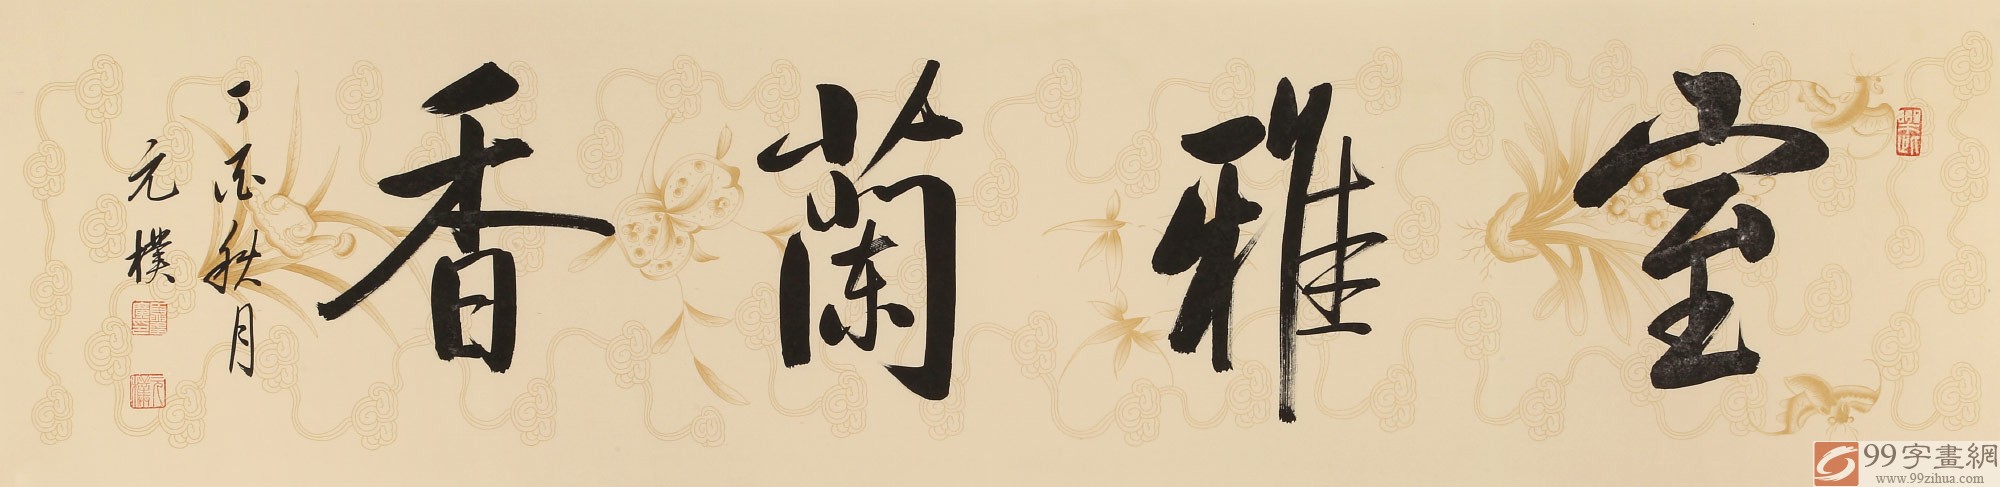 室雅蘭香
丁酉秋月
元樸
99字畫網
www.99zihua.com